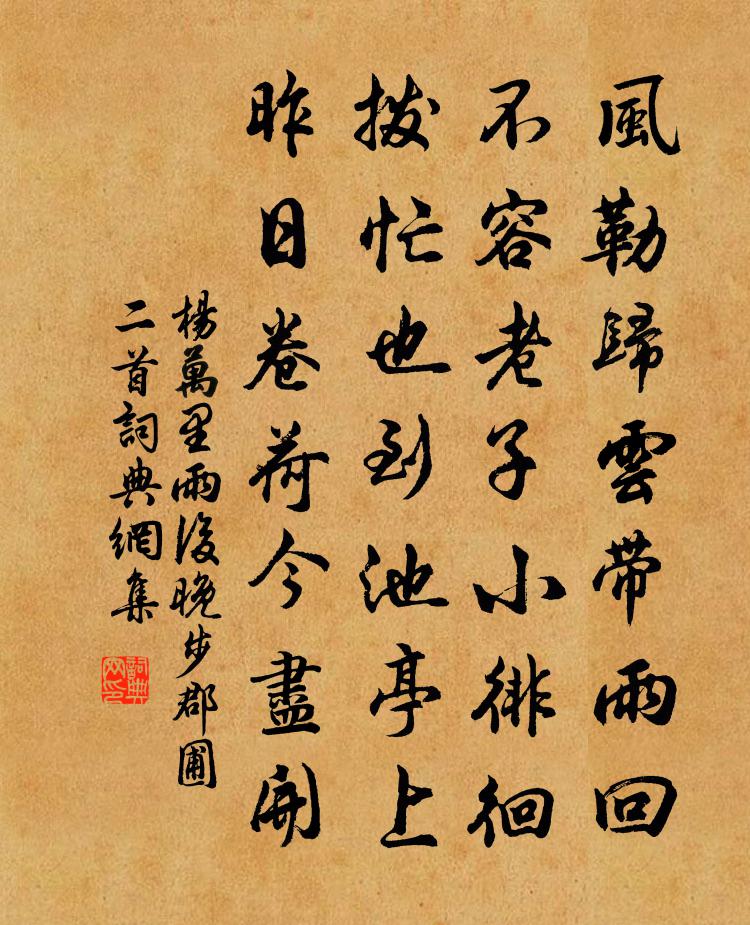 風勒歸雲帶雨回
不容老子小徘徊
撥忙也到池亭上
昨日卷荷今盡開
楊萬里雨後晚步郡圃
二首詞典網集
詞典網印